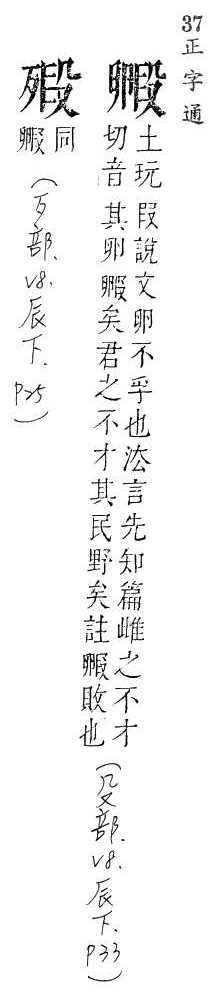 37 正字通
毈
土玩
切音
段說文卵不乎也法言先知篇雌之不才
其卵毈矣君之不才其民野矣註毈敗也
(殳部.v8.辰下.P33)
同
毈
(歹部.v8.辰下.P25)